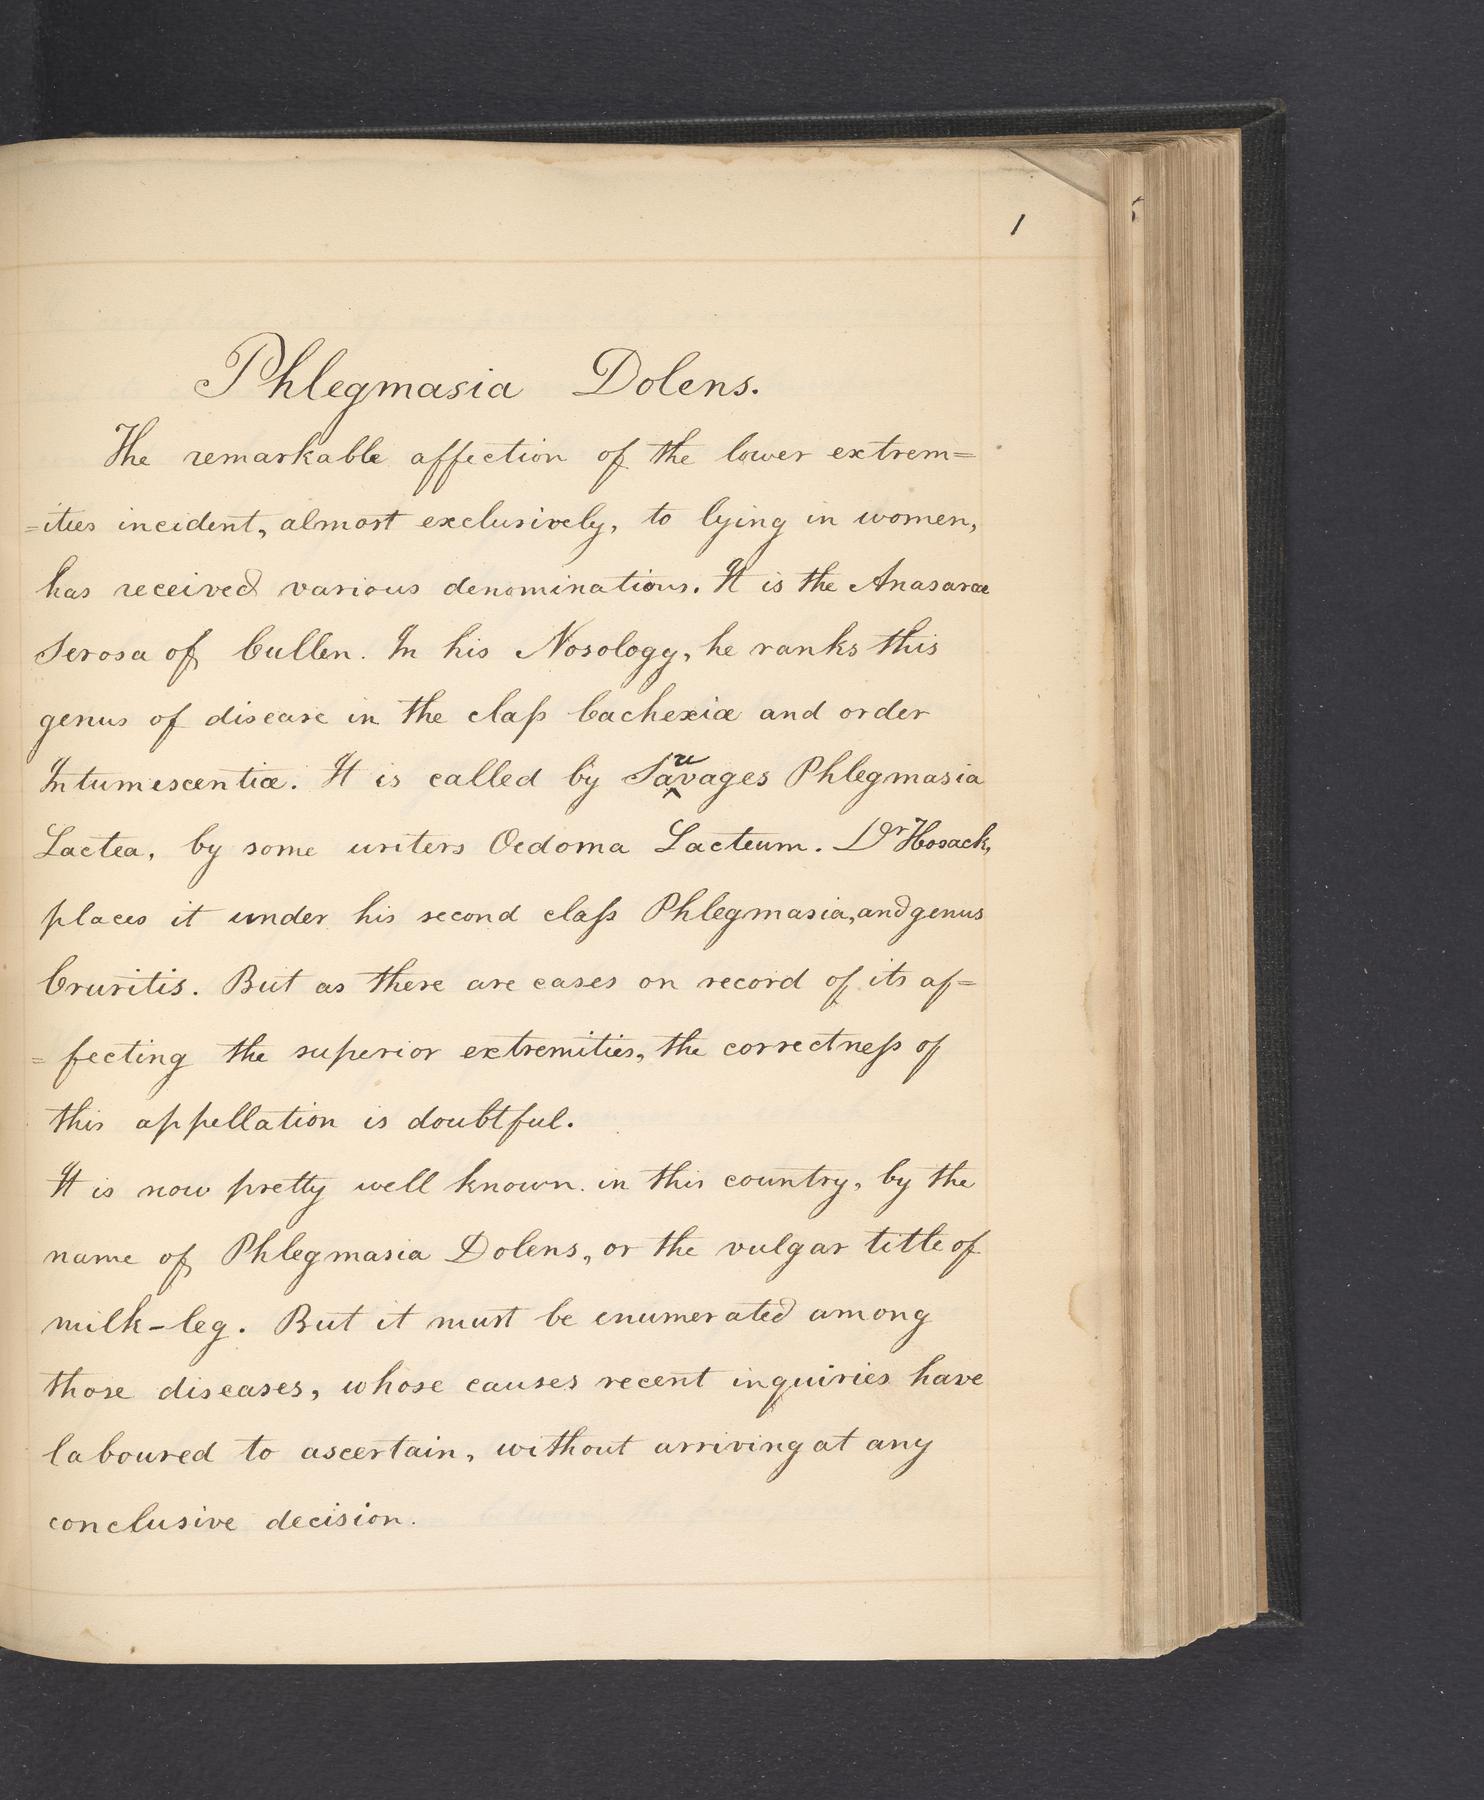 1
Phlegmasia Dolens.
The remarkable affection of the lower extrem=
=ities incident, almost exclusively, to lying in women,
has received various denominations. It is the Anasarcæ
Serosa of Cullen. In his Nosology, he ranks this
genus of disease in the claſs Cachexiæ and order
Intumescentiæ. It is called by Sauvages Phlegmasia
Lactea, by some writers Oedoma Lacteum. Dr Hosack,
places it under his second claſs Phlegmasia, and genus
Cruritis. But as there are cases on record of its af=
=fecting the superior extremities, the correctneſs of
this appellation is doubtful.
It is now pretty well known in this country, by the
name of Phlegmasia Dolens, or the vulgar title of
milk-leg. But it must be enumerated among
those diseases, whose causes recent inquiries have
laboured to ascertain, without arriving at any
conclusive decision.